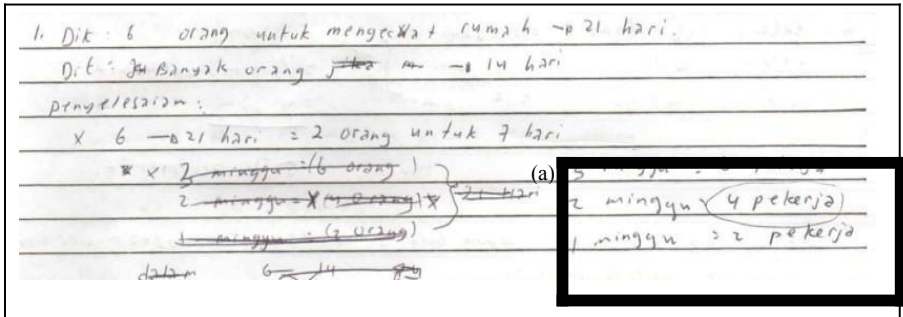 1. Dik : 6 orang untuk mengecat rumah → 21 hari.
Dit : Banyak orang jika → 14 hari
penyelesaian :
x 6 → 21 hari = 2 orang untuk 7 hari
x x 3 minggu = (6 orang)
2 minggu = x (4 orang) x 21 hari
1 minggu = (2 orang)
dalam 6 14
(a)
3 minggu
2 minggu = 4 pekerja
1 minggu = 2 pekerja